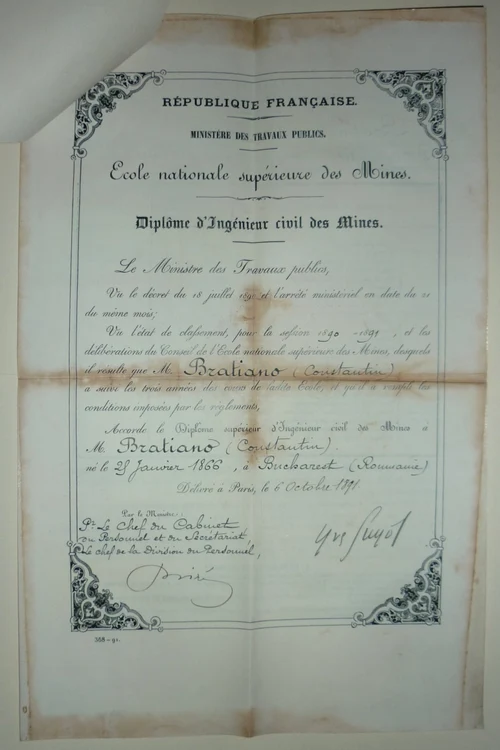 RÉPUBLIQUE FRANÇAISE.
MINISTÈRE DES TRAVAUX PUBLICS.
Ecole nationale supérieure des Mines.
Diplôme d'Ingénieur civil des Mines.
Le Ministre des Travaux publics,
Vu le décret du 18 juillet 1890 et l'arrêté ministériel en date du
du même mois;
Vu l'état de classement, pour la session 1890-1891, et les
délibérations du Conseil de l'Ecole nationale supérieure des Mines, desquels
il résulte que M. Bratiano (Constantin)
a suivi les trois années des cours de ladite Ecole, et qu'il a rempli les
conditions imposées par les règlements,
Accorde le Diplôme supérieur d'Ingénieur civil des Mines à
M. Bratiano (Constantin).
né le Janvier 1866, à Bucharest (Roumanie)
Délivré à Paris, le 6 Octobre 1891.
Par le Ministre:
Pr. Le Chef du Cabinet
du Personnel et du Secrétariat,
Le chef de la Division du Personnel,
Yves Guyot
368-91.